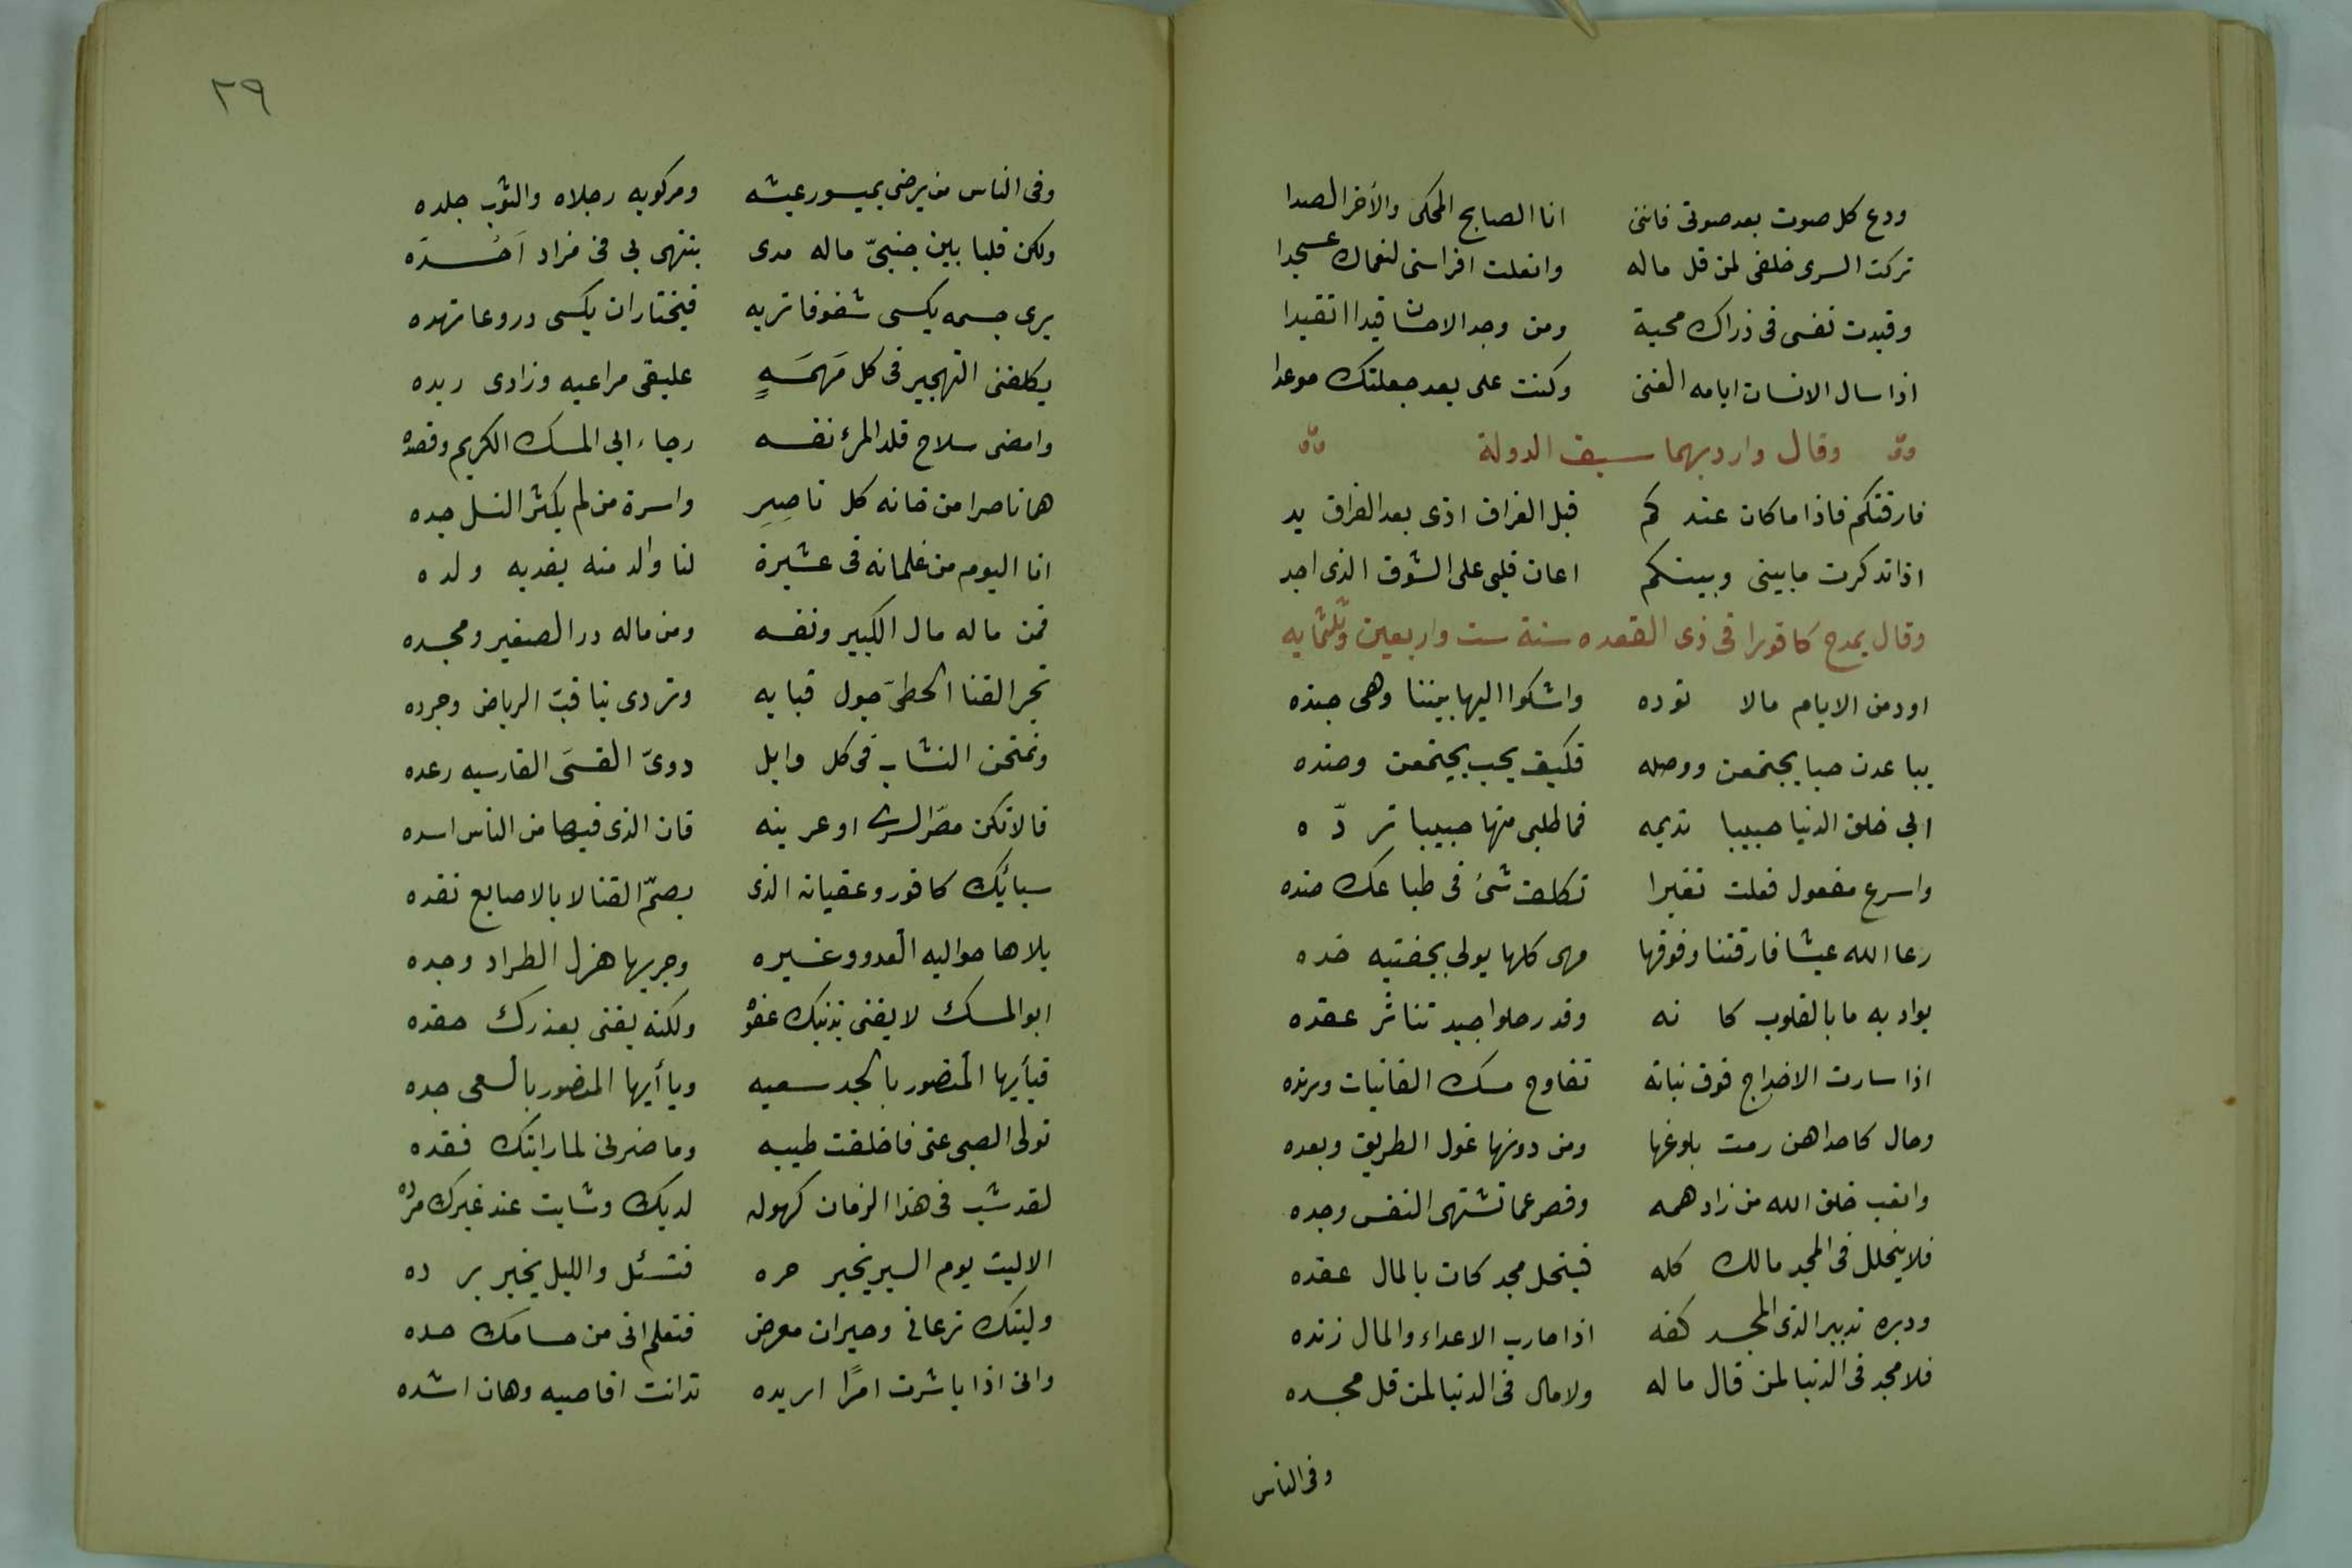 ودع كل صوت بعد صوتى فاننى انا الصابح المحكى والأخر الصدا
تركت السرى خلفى لمن قل ماله وانعلت افراسى لنعماك عسجدا
وقيدت نفسى فى ذراك محبة ومن وجد الاحسان قيدا اتقيدا
اذا سال الانسان ايامه الغنى وكنت على بعد جعلتك موعدا
وقال وارد بهما سيف الدولة
فارقتكم فاذا ما كان عندكم قبل الفراق اذى بعد الفراق يد
اذا تذكرت ما بينى وبينكم اعان قلبى على الشوق الذى اجد
وقال يمدح كافورا فى ذى القعده سنة ست واربعين وثلثمايه
اود من الايام مالا توده واشكوا اليها بيننا وهى جنده
يباعدن حبا يجتمعن ووصله فكيف بحب يجتمعن وصده
ابى خلق الدنيا حبيبا تديمه فما طلبى منها حبيبا تردّه
واسرع مفعول فعلت تغيرا تكلف شئ فى طباعك ضده
رعا الله عيشا فارقتنا وفوقها مهى كلها يولى بجفنيه خده
بواد به ما بالقلوب كانه وقد رحلوا جيد تناثر عقده
اذا سارت الاخداج فوق نباته تفاوح مسك الغانيات ورنده
وحال كاحداهن رمت بلوغها ومن دونها غول الطريق وبعده
واتعب خلق الله من زاد همه وقصر عما تشتهى النفس وجده
فلا ينحلل فى المجد مالك كله فينحل مجد كان بالمال عقده
ودبره تدبير الذى المجد كفه اذا حارب الاعداء والمال زنده
فلا مجد فى الدنيا لمن قال ماله ولا مال فى الدنيا لمن قل مجده
وفى الناس
٢٩
وفى الناس من يرضى بميسور عيشه ومركوبه رجلاه والثوب جلده
ولكن قلبا بين جنبىّ ماله مدى ينتهى بى فى مراد اَحُدّه
يرى جسمه يكسى شفوفا تربه فيختار ان يكسى دروعا تهده
يكلفنى التهجير فى كل مَهمَهٍ عليقى مراعيه وزادى ربده
وامضى سلاح قلد المرء نفسه رجاء ابى المسك الكريم وقصده
هما ناصرا من خانه كل ناصِرِ واسرة من لم يكثر النسل جده
انا اليوم من غلمانه فى عشيرة لنا والد منه يفديه ولده
فمن ماله مال الكبير ونفسه ومن ماله در الصغير ومجده
نجر القنا الخطىّ حول قبابه وتردى بنا قبّ الرياض وجرده
ونمتحن النشاب فى كل وابل دوىّ القسَى الفارسيه رعده
فالا تكن مصر الشرى او عرينه فان الذى فيها من الناس اسده
سبائك كافور وعقيانه الذى بصمّ القنا لا بالاصابع نقده
بلاها حواليه العدو وغيره وجربها هزل الطراد وجده
ابو المسك لا يفنى بذنبك عفوه ولكنه يفنى بعذرك حقده
فيأيها المنصور بالجد سعيه ويا أيها المنصور بالسعى جده
تولى الصبى عنى فاخلفت طيبه وما ضرنى لما رايتك فقده
لقد شب فى هذا الزمان كهوله لديك وشابت عند غيرك مرده
الا ليت يوم السير يخبر حره فتسئل والليل يخبر برده
وليتك ترعانى وحيران معرض فتعلم انى من حسامك حده
وانى اذا باشرت امرًا اريده تدانت اقاصيه وهان اشده